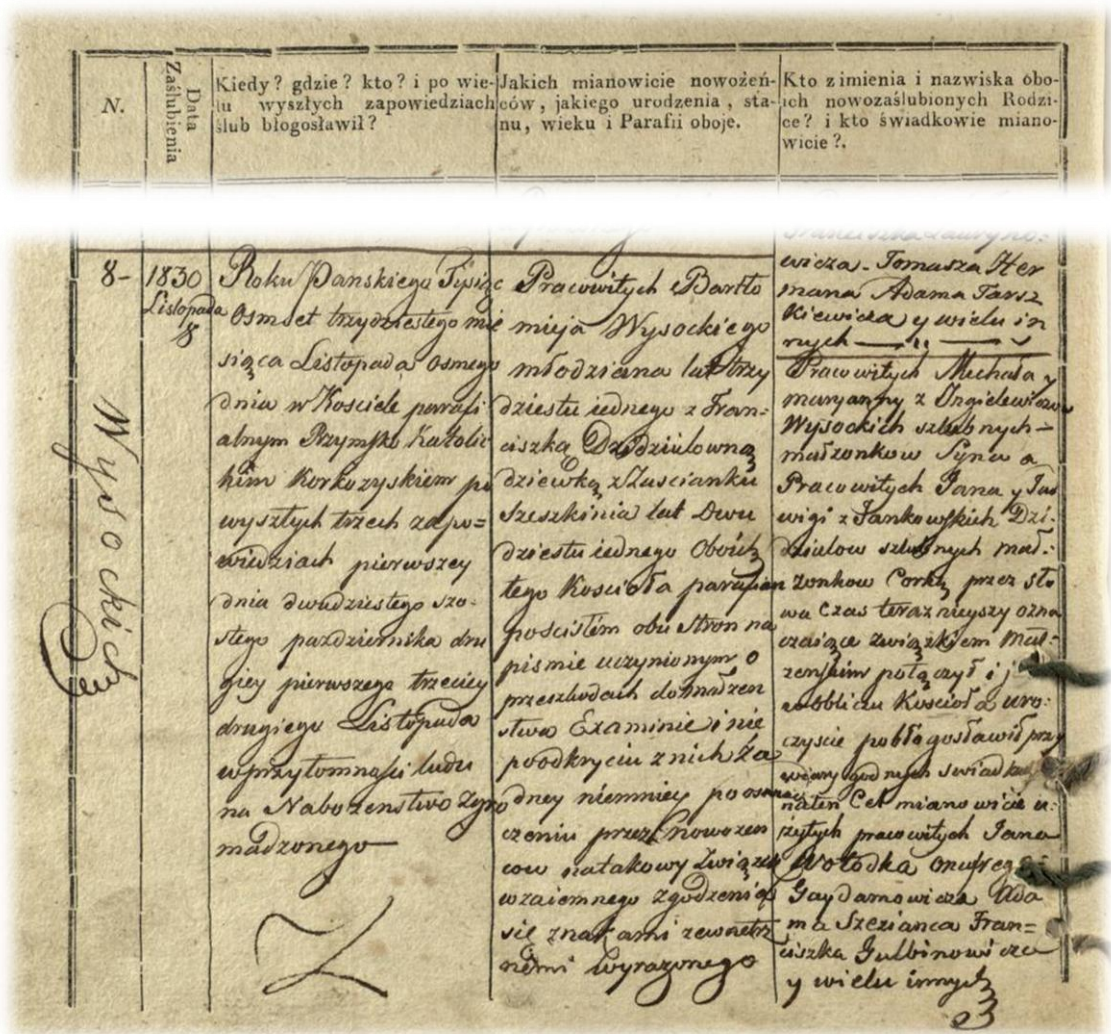 N.
Data
Zaślubienia
Kiedy? gdzie? kto? i po wie-
lu wyszłych zapowiedziach
ślub błogosławił?
Jakich mianowicie nowożeń-
ców, jakiego urodzenia, sta-
nu, wieku i Parafii oboje.
Kto z imienia i nazwiska obo-
ich nowozaślubionych Rodzi-
ce? i kto świadkowie miano-
wicie?.
wicza. Tomasza Her
mana Adama Tarsz
kiewicza y wielu in
nych
8-
1830
Listopada
8
Wysockich
Roku Panskiego Tysiąc
Osmset trzydziestego mie
siąca Listopada osmego
dnia w Kosciele parafi
alnym Rzymsko Katolic
kim Korkozyskiem po
wyszłych trzech zapo=
wiedziach pierwszey
dnia dwudziestego szo-
stego pazdziernika dru
giey pierwszego trzeciey
drugiego Listopada
w przytomnosci ludu
na Nabozenstwo zgro
madzonego
Pracowitych Bartło
mieja Wysockiego
młodziana lat trzy
dziestu iednego z Fran=
ciszką Dzidziulowną
dziewką z Zascianku
Szeszkinia lat Dwu
dziestu iednego Oboich
tego Koscioła parafian
po scisłem obu stron na
pismie uczynionym o
przeszkodach do małżen
stwa Examinie i nie
poodkryciu z nich ża
dney niemniey po oznay
czeniu przez Nowożen
cow na takowy Związek
wzaiemnego zgodzenia
się znakami zewnętrz
nemi wyrazonego
Pracowitych Michała y
Maryanny z
Wysockich szlubnych
małzonkow Syna a
Pracowitych Jana y Jad
wigi z Jankowskich Dzi-
dziulow szlubnych mał-
zonkow Corkę przez sło
wa Czas teraznieyszy ozna
czaiące związkiem Mał-
zenskim połączył i j
w obliczu Koscioła uro-
czyscie pobłogosławił przy
wiary godnych swiadkach
na ten Cel mianowicie u-
zytych pracowitych Jana
Wołodka Onufrego
Gaydamowicza Ada
ma Szczianca Fran=
ciszka Gulbinowicza
y wielu innych